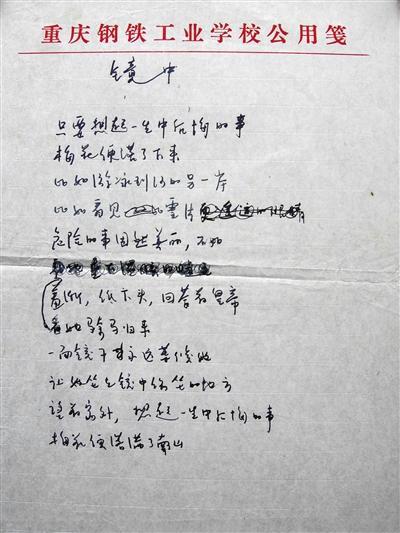 重庆钢铁工业学校公用笺
镜中
只要想起一生中后悔的事
梅花便落了下来
比如游泳到河的另一岸
比如看见雪片
危险的事固然美丽,不如
羞惭,低下头,回答着皇帝
看她骑马归来
一面镜子永远等候她
让她坐到镜中常坐的地方
望着窗外,想起一生中后悔的事
梅花便落满了南山